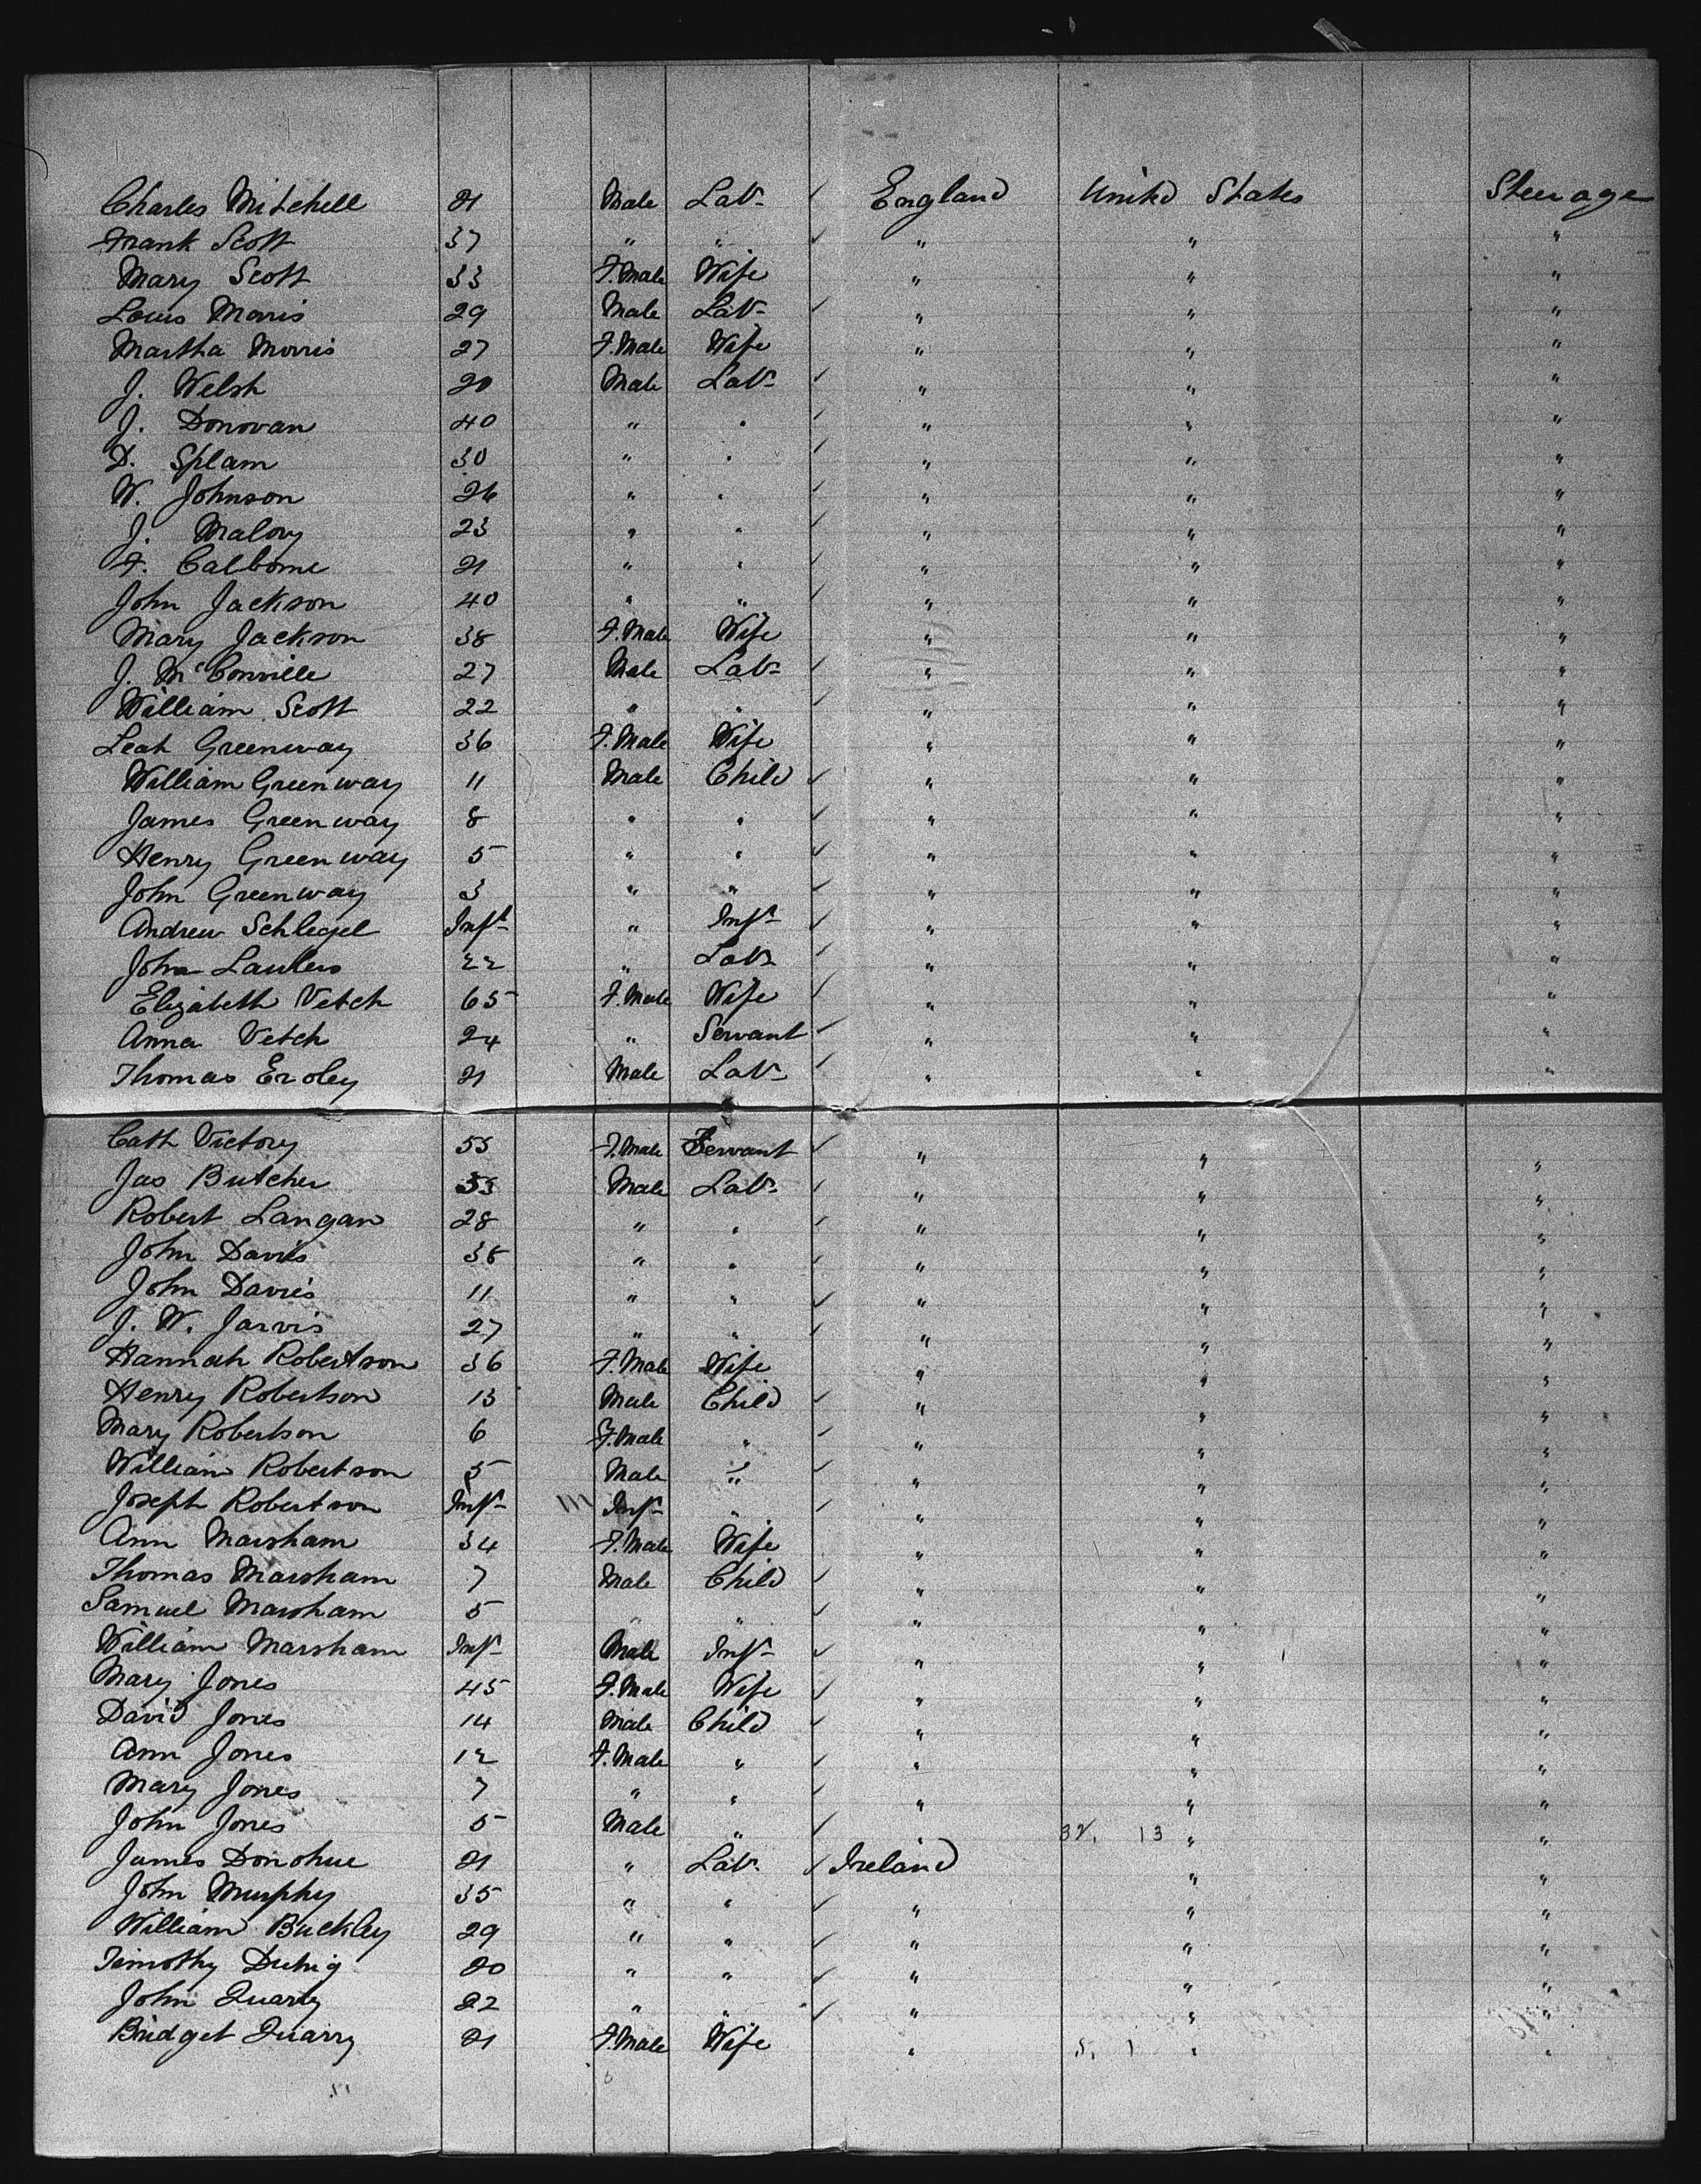 Charles Mitchell 21 Male Labr England United States Steerage
Frank Scott 37 " " " " "
Mary Scott 33 F.Male Wife " " "
Louis Morris 29 Male Labr " " "
Martha Morris 27 F.Male Wife " " "
J. Welsh 20 Male Labr " " "
J. Donovan 40 " " " " "
D. Splam 30 " " " " "
W. Johnson 26 " " " " "
J. Malory 23 " " " " "
F. Calborne 21 " " " " "
John Jackson 40 " " " " "
Mary Jackson 38 F.Male Wife " " "
J. McConville 27 Male Labr " " "
William Scott 22 " " " " "
Leah Greenway 36 F.Male Wife " " "
William Greenway 11 Male Child " " "
James Greenway 8 " " " " "
Henry Greenway 5 " " " " "
John Greenway 3 " " " " "
Andrew Schlegel Inft " Inft " " "
John Lauders 22 " Labr " " "
Elizabeth Vetch 65 F.Male Wife " " "
Anna Vetch 24 " Servant " " "
Thomas Eroley 21 Male Labr " " "
Cath Victory 55 F.Male Servant " " "
Jas Butcher 33 Male Labr " " "
Robert Langan 28 " " " " "
John Davis 38 " " " " "
John Davies 11 " " " " "
J. W. Jarvis 27 " " " " "
Hannah Robertson 36 F.Male Wife " " "
Henry Robertson 13 Male Child " " "
Mary Robertson 6 F.Male " " " "
William Robertson 5 Male " " " "
Joseph Robertson Inft Inft " " " "
Ann Marsham 34 F.Male Wife " " "
Thomas Marsham 7 Male Child " " "
Samuel Marsham 5 " " " " "
William Marsham Inft Male Inft " " "
Mary Jones 45 F.Male Wife " " "
David Jones 14 Male Child " " "
Ann Jones 12 F.Male " " " "
Mary Jones 7 " " " " "
John Jones 5 Male " " 32. 13 " "
James Donohue 21 " Labr Ireland " "
John Murphy 35 " " " " "
William Buckley 29 " " " " "
Timothy Duhig 20 " " " " "
John Quarry 22 " " " " "
Bridget Quarry 21 F.Male Wife " 5. 1 " "